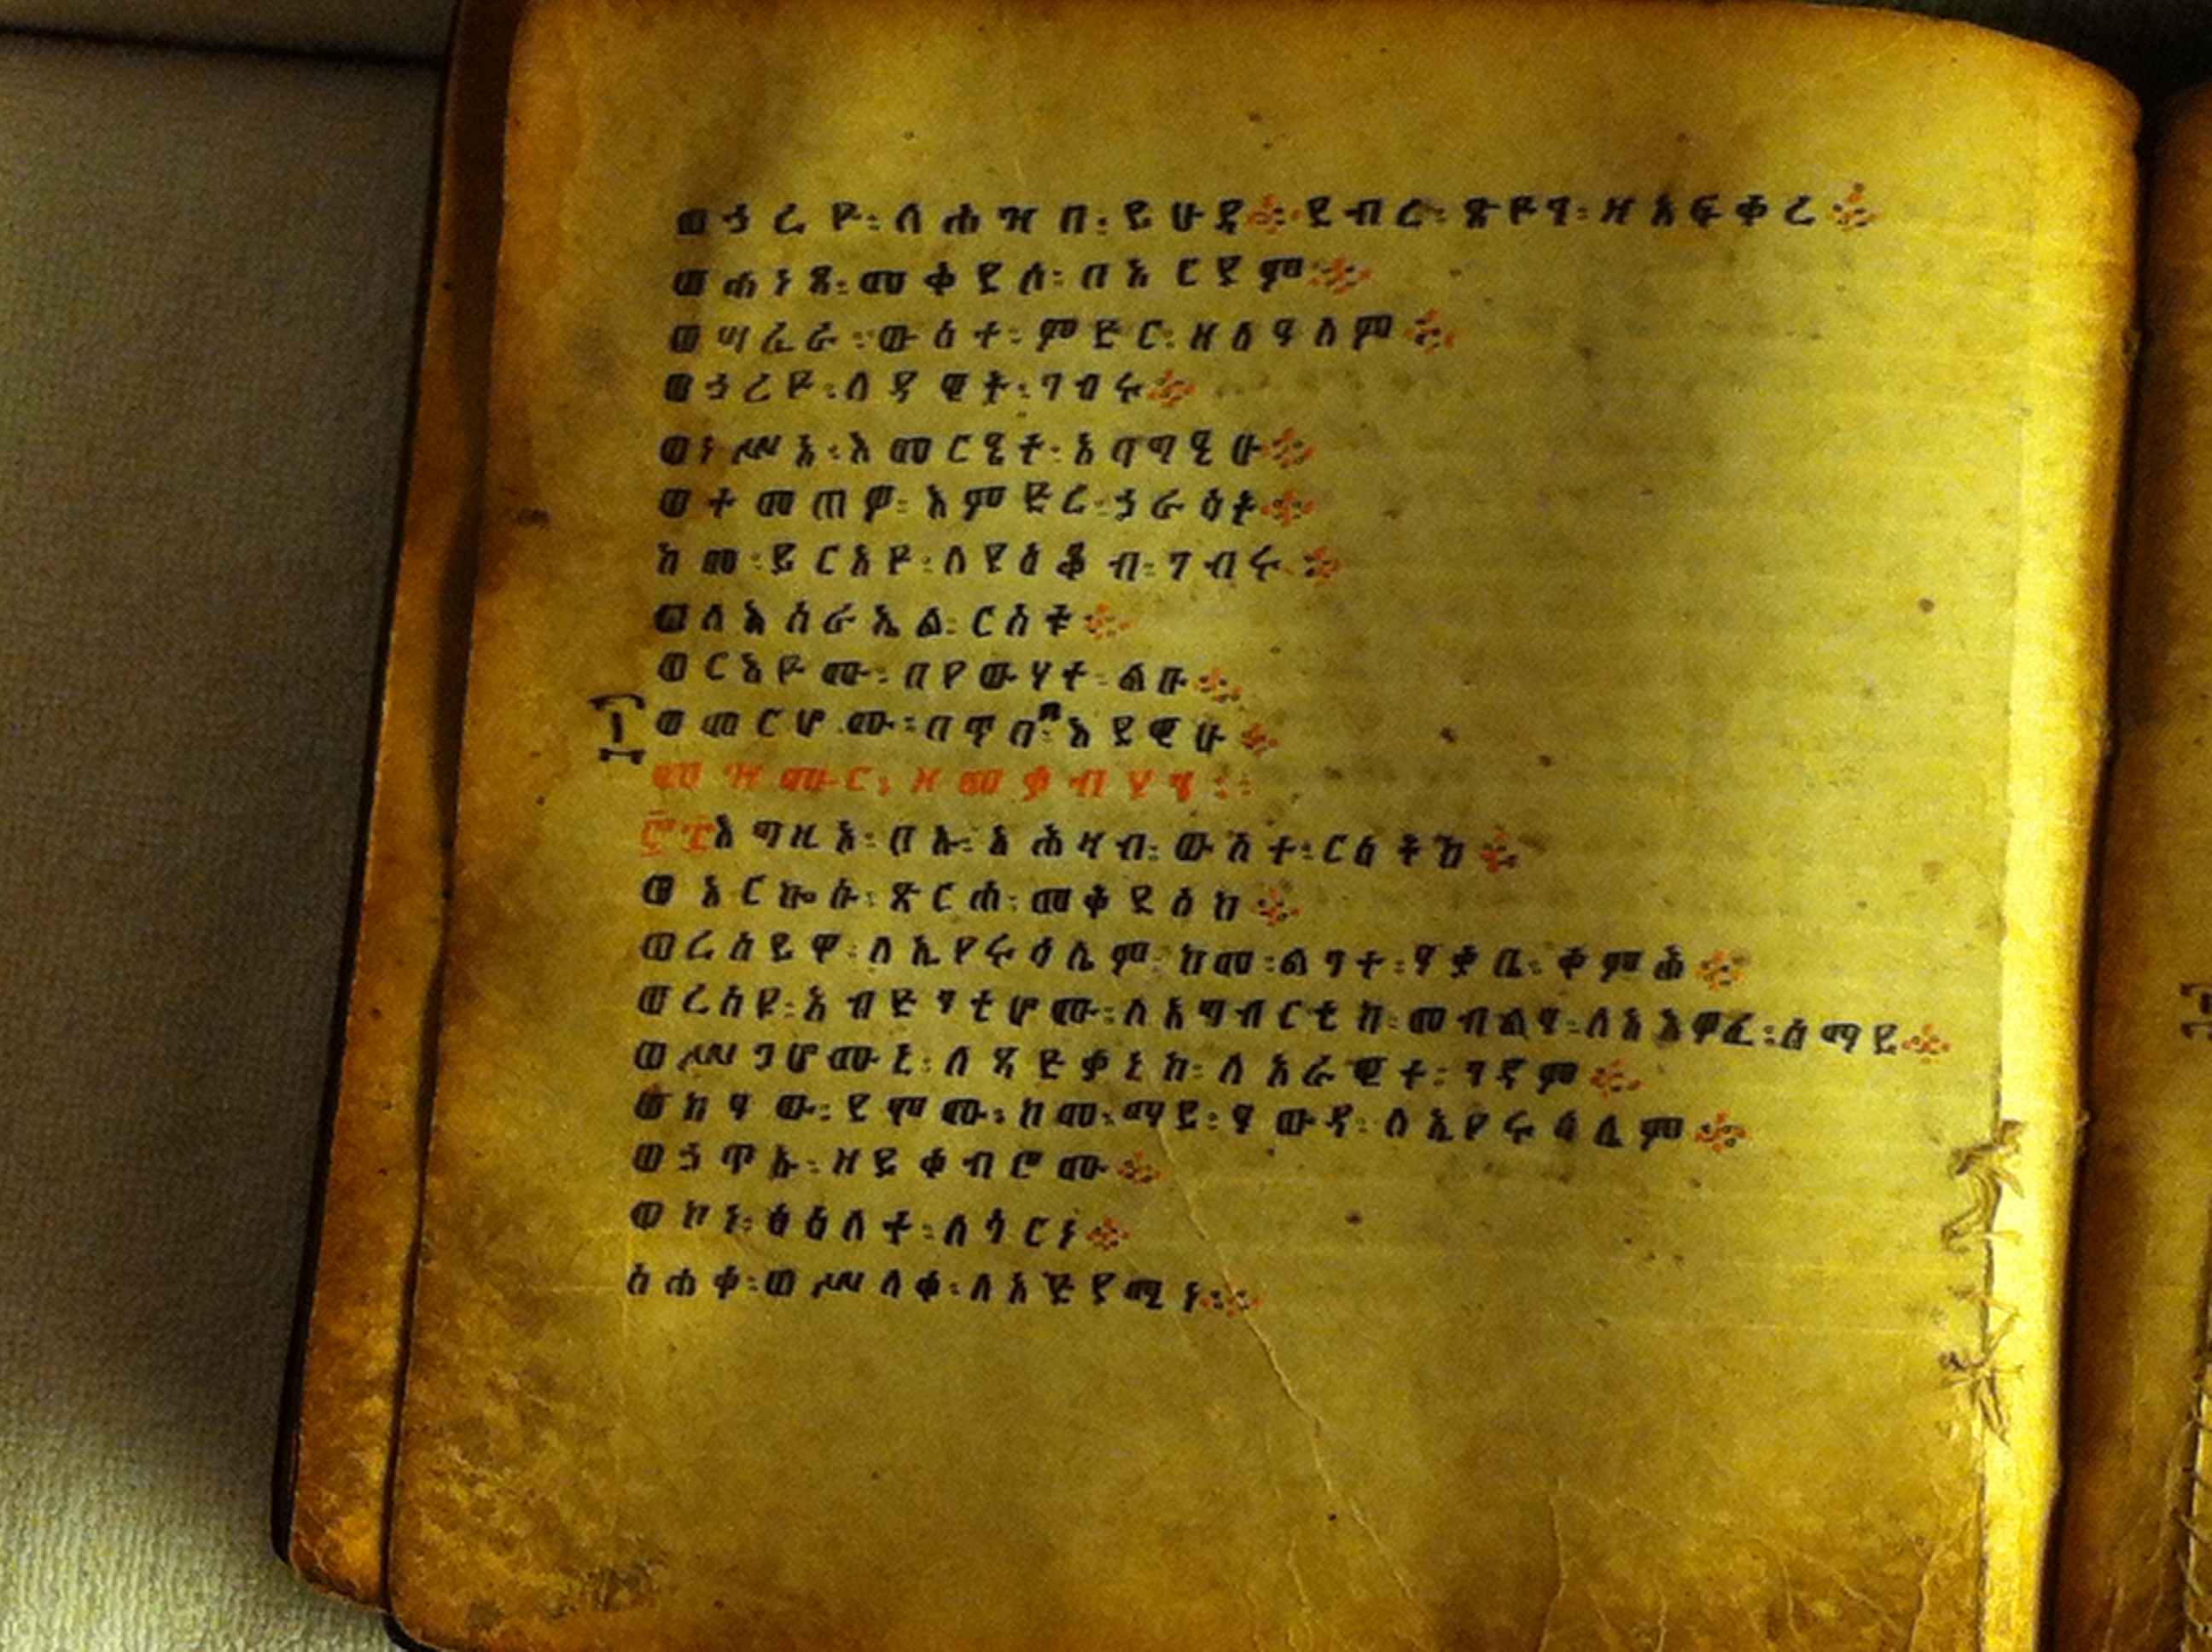 ወኃረዮ፡ለሕዝበ፡ይሁዳ፨ደብረ፡ጽዮን፡ዘአፍቀረ፨
ወሐነጸ፡መቅደሰ፡በአርያም፨
ወሣረራ፡ውስተ፡ምድር፡ዘለዓለም፨
ወኃረዮ፡ለዳዊት፡ገብሩ፨
ወነሥአ፡እመርዔተ፡አባግዒሁ፨
ወተመጠዎ፡እምድኅረ፡ኃራስት፨
ከመ፡ይርአዮ፡ለያዕቆብ፡ገብሩ፨
ወለእስራኤል፡ርስቱ፨
ወርእዮሙ፡በየውሃተ፡ልቡ፨
ወመርሆሙ፡በጥበበ፡እደዊሁ፨
መዝሙር፡ዘመቃብያን፡፡
፸፰እግዚኦ፡ቦኡ፡አሕዛብ፡ውስተ፡ርስትከ፨
ወአርኰሱ፡ጽርሐ፡መቅደስከ፨
ወረሰይዋ፡ለኢየሩሳሌም፡ከመ፡ልገተ፡ዓቃቤ፡ቀምሕ፨
ወረሰዩ፡አብድንቲሆሙ፡ለአግብርቲከ፡መብልዓ፡ለአእዋፈ፡ሰማይ፨
ወሥጋሆሙኒ፡ለጻድቃኒከ፡ለአራዊተ፡ገዳም፨
ወከዓው፡ደሞሙ፡ከመ፡ማይ፡ዓውዳ፡ለኢየሩሳሌም፨
ወኃጥኡ፡ዘይቀብሮሙ፨
ወኮነ፡ፅዕለተ፡ለጎርነ፨
ስሐቀ፡ወሥላቀ፡ለአድያሚነ፨